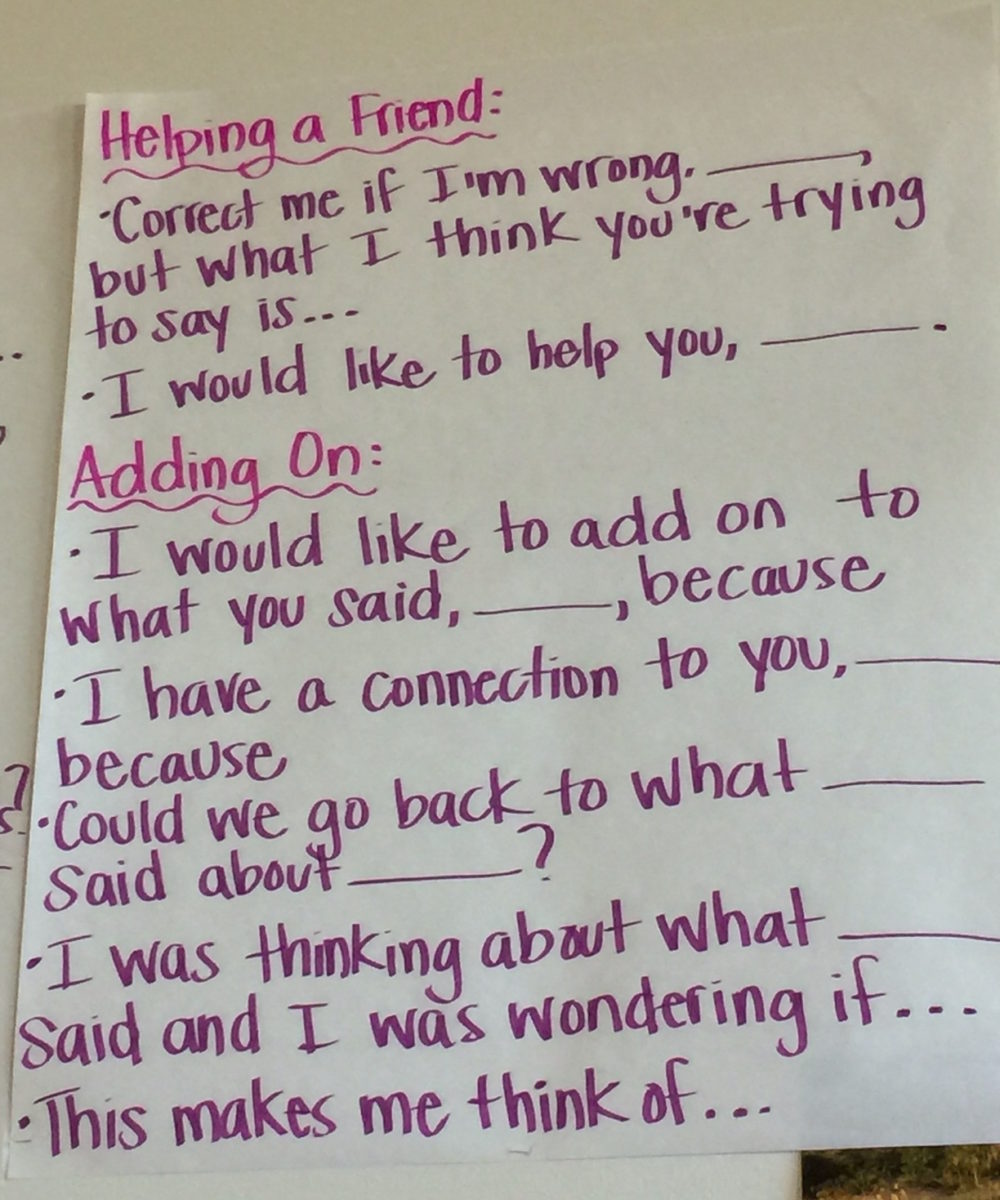 Helping a Friend:
·Correct me if I'm wrong. ______,
but what I think you're trying
to say is...
·I would like to help you, ______.
Adding On:
·I would like to add on to
what you said, ______, because
·I have a connection to you, ______
because
·Could we go back to what ______
said about ______?
·I was thinking about what ______
said and I was wondering if...
·This makes me think of...